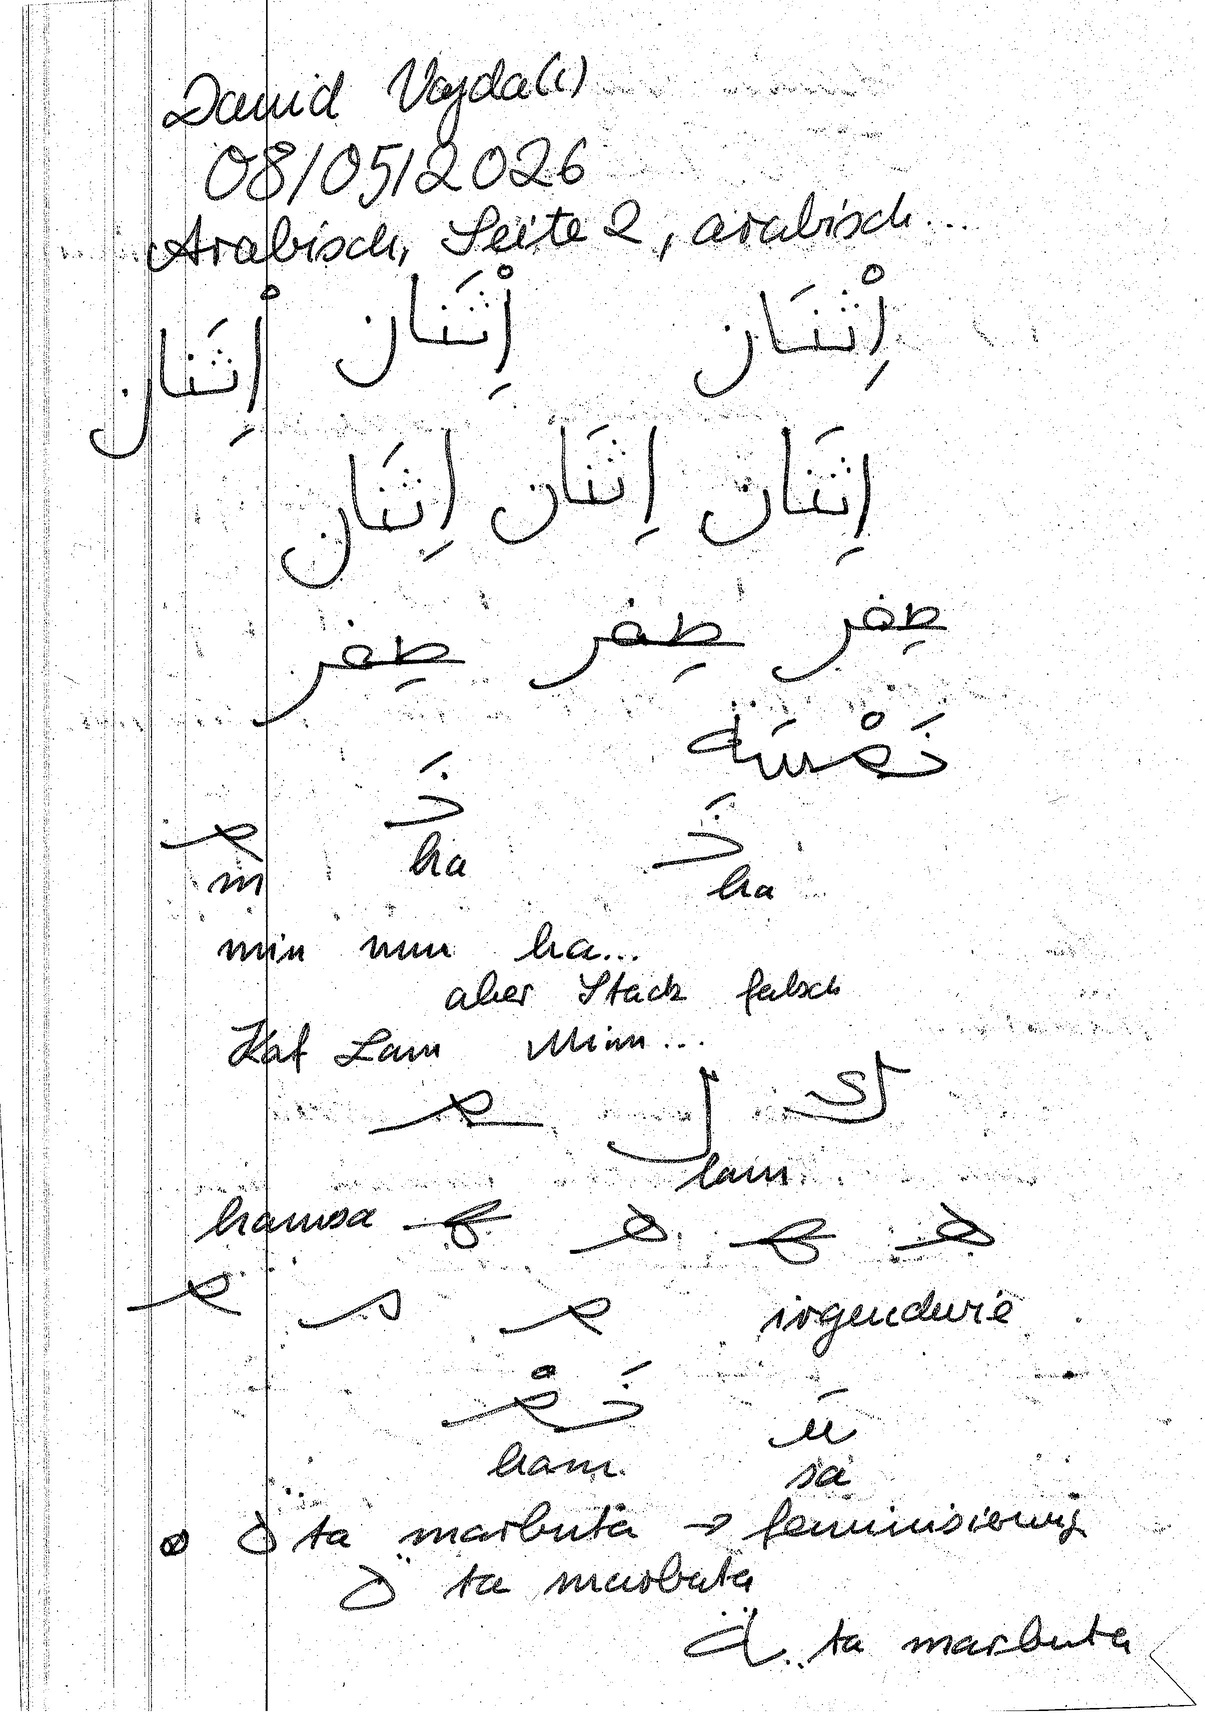 David Vajda(c)
08/05/2026
Arabisch, Seite 2, arabisch...
إِثْنَان إِثْنَان إِثْنَان
إِثنَان إِثنَان إِثنَان
صِفر صِفر صِفر
خَمْسَة
خَ خَ م
m ha ha
min nun ha...
aber Stack falsch
Kaf Lam Mim...
ك ل م
lam
hamsa ه ه ه ه
م م م irgendwie
خَمْ سَ
ham sa
ة ta marbuta → feminisierung
ة ta marbuta
ة ta marbuta